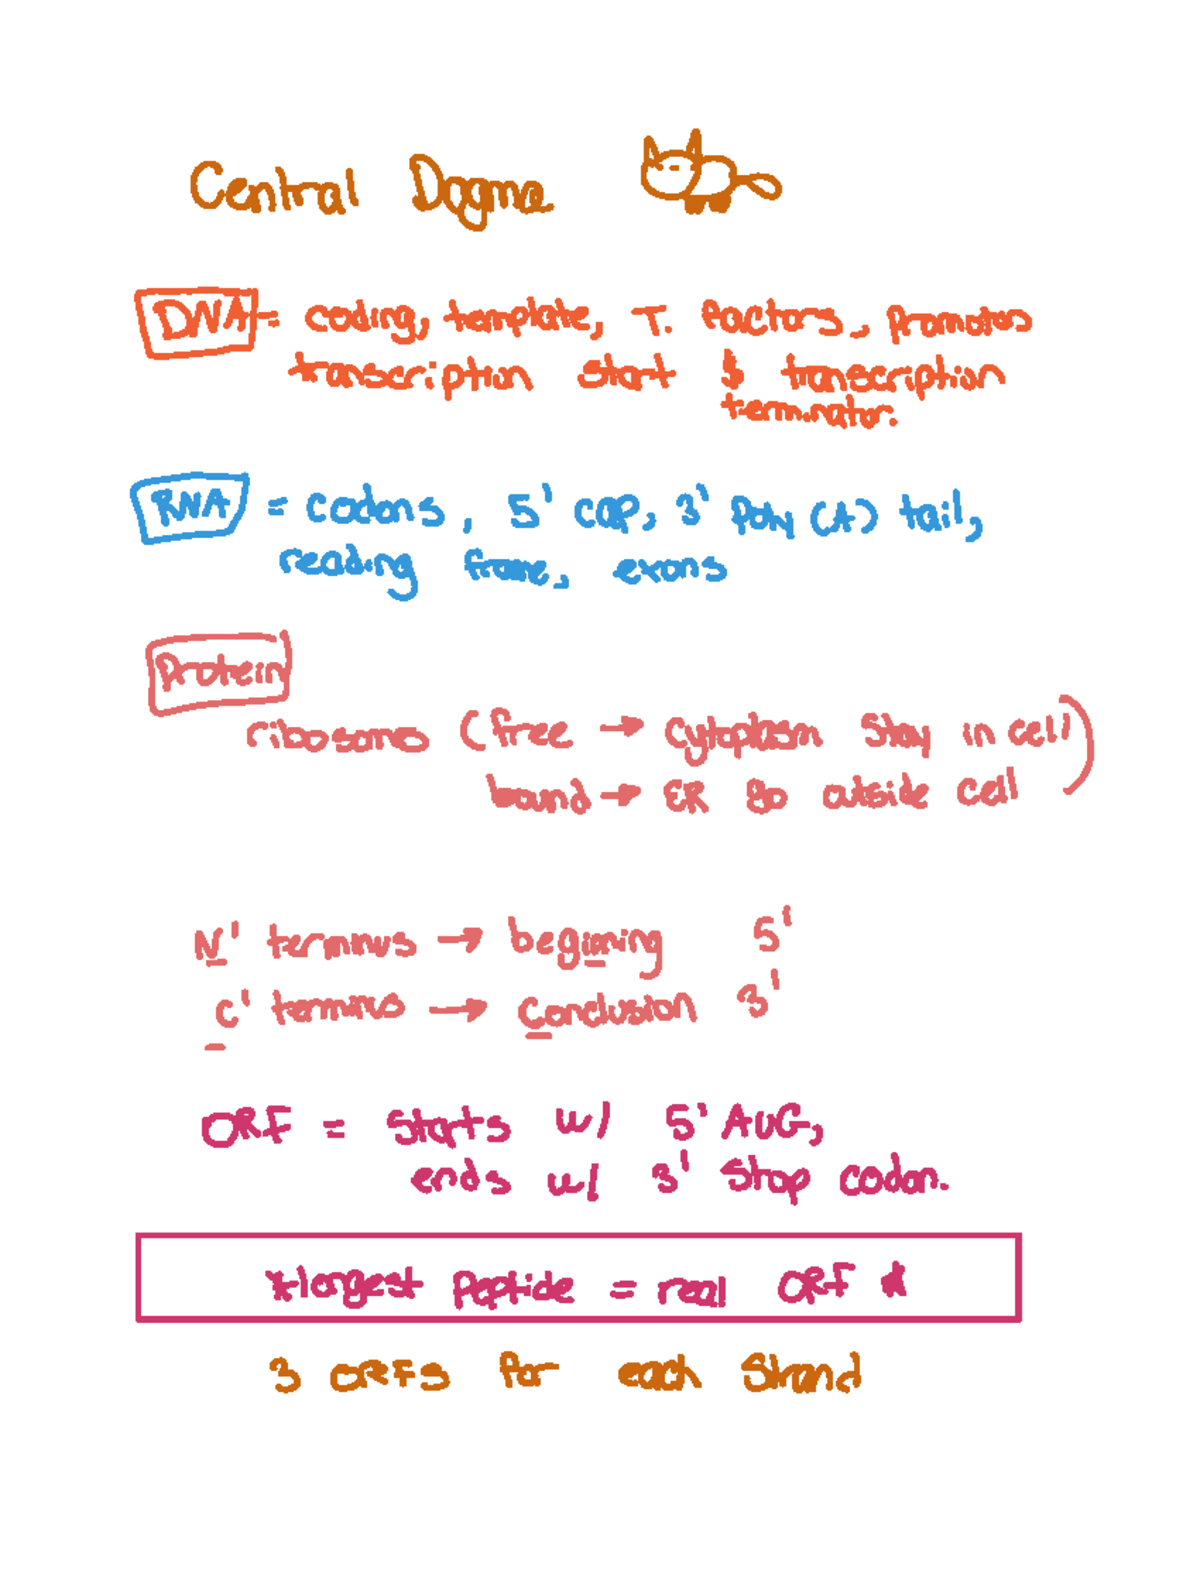 Central Dogma
DNA = coding, template, T. factors, promotors
transcription start & transcription
terminator.
RNA = codons, 5' cap, 3' Poly (A) tail,
reading frame, exons
Protein
ribosomes (free → cytoplasm stay in cell
bound → ER go outside cell)
N' terminus → beginning 5'
C' terminus → Conclusion 3'
ORF = starts w/ 5' AUG,
ends w/ 3' stop codon.
*largest peptide = real ORF *
3 ORFs for each strand